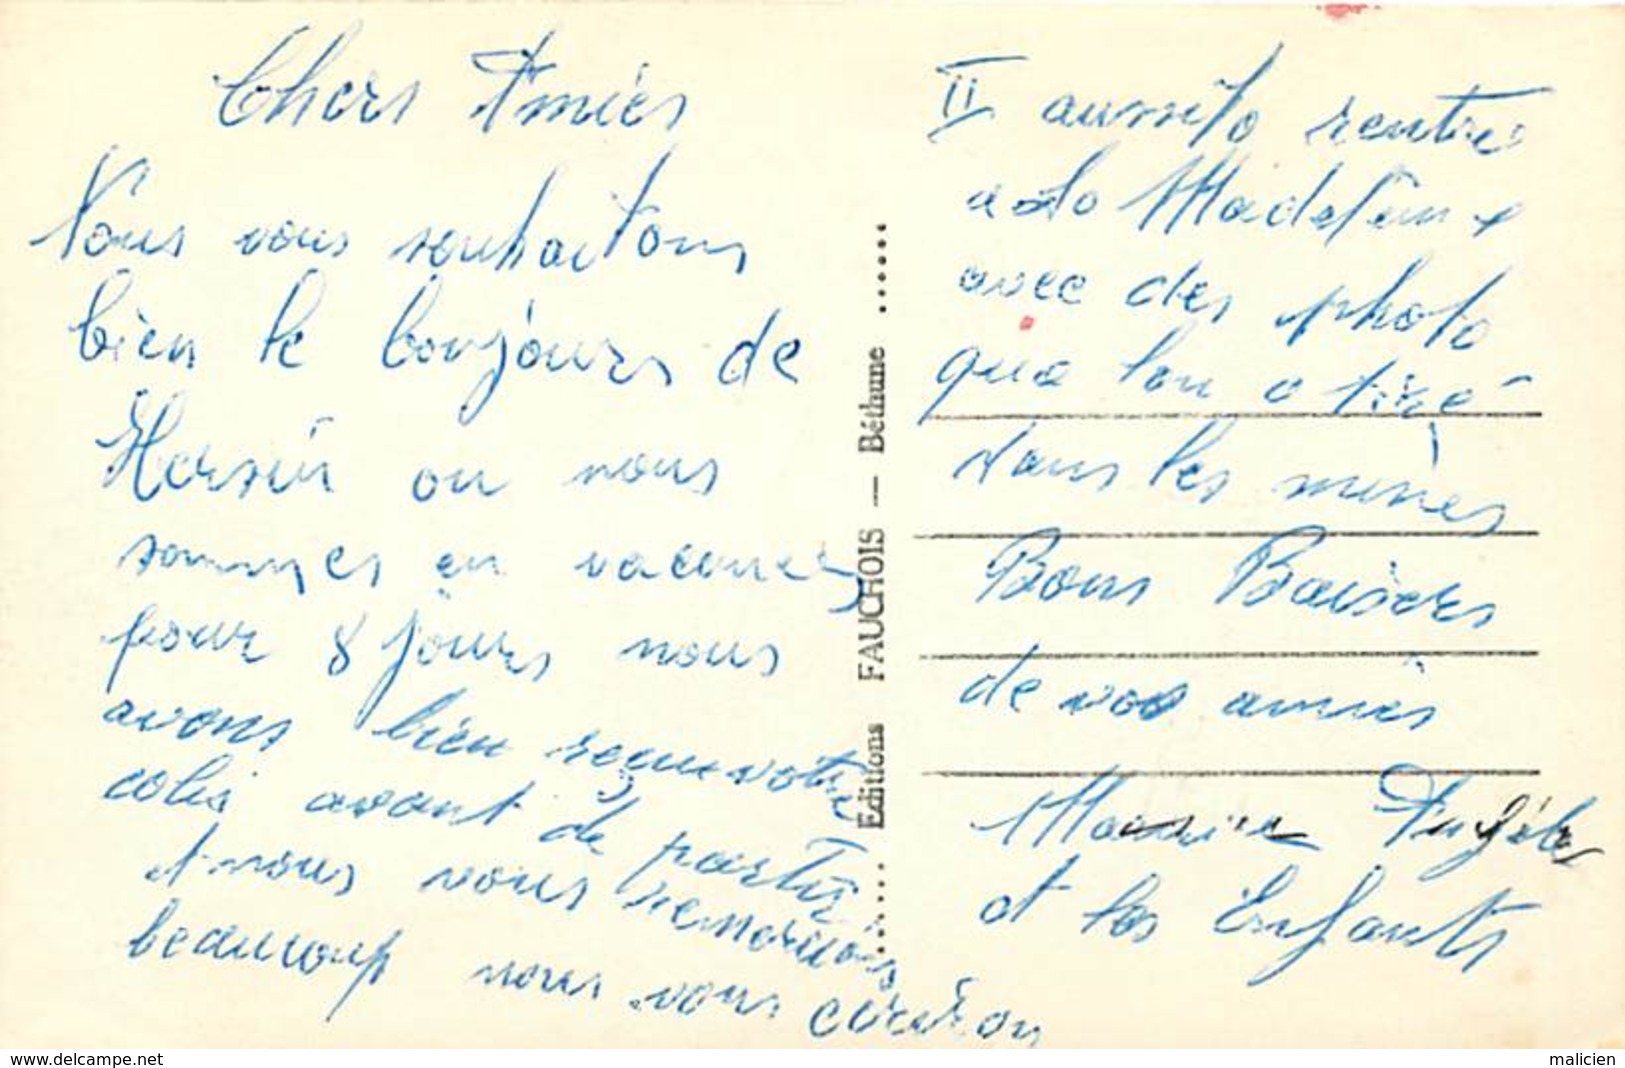 Chers Amies
Nous vous souhaitons
bien le bonjours de
Hersin ou nous
sommes en vacances
pour 8 jours nous
avons bien reçue votre
colis avant de partir
et nous vous remercions
beaucoup nous vous
II aussito rentrée
a La Madeleine
avec des photo
que lon a tiré
dans les mines
Bons Baisers
de vos amies
et les Enfants
Editions FAUCHOIS — Béthune
www.delcampe.net
malicien